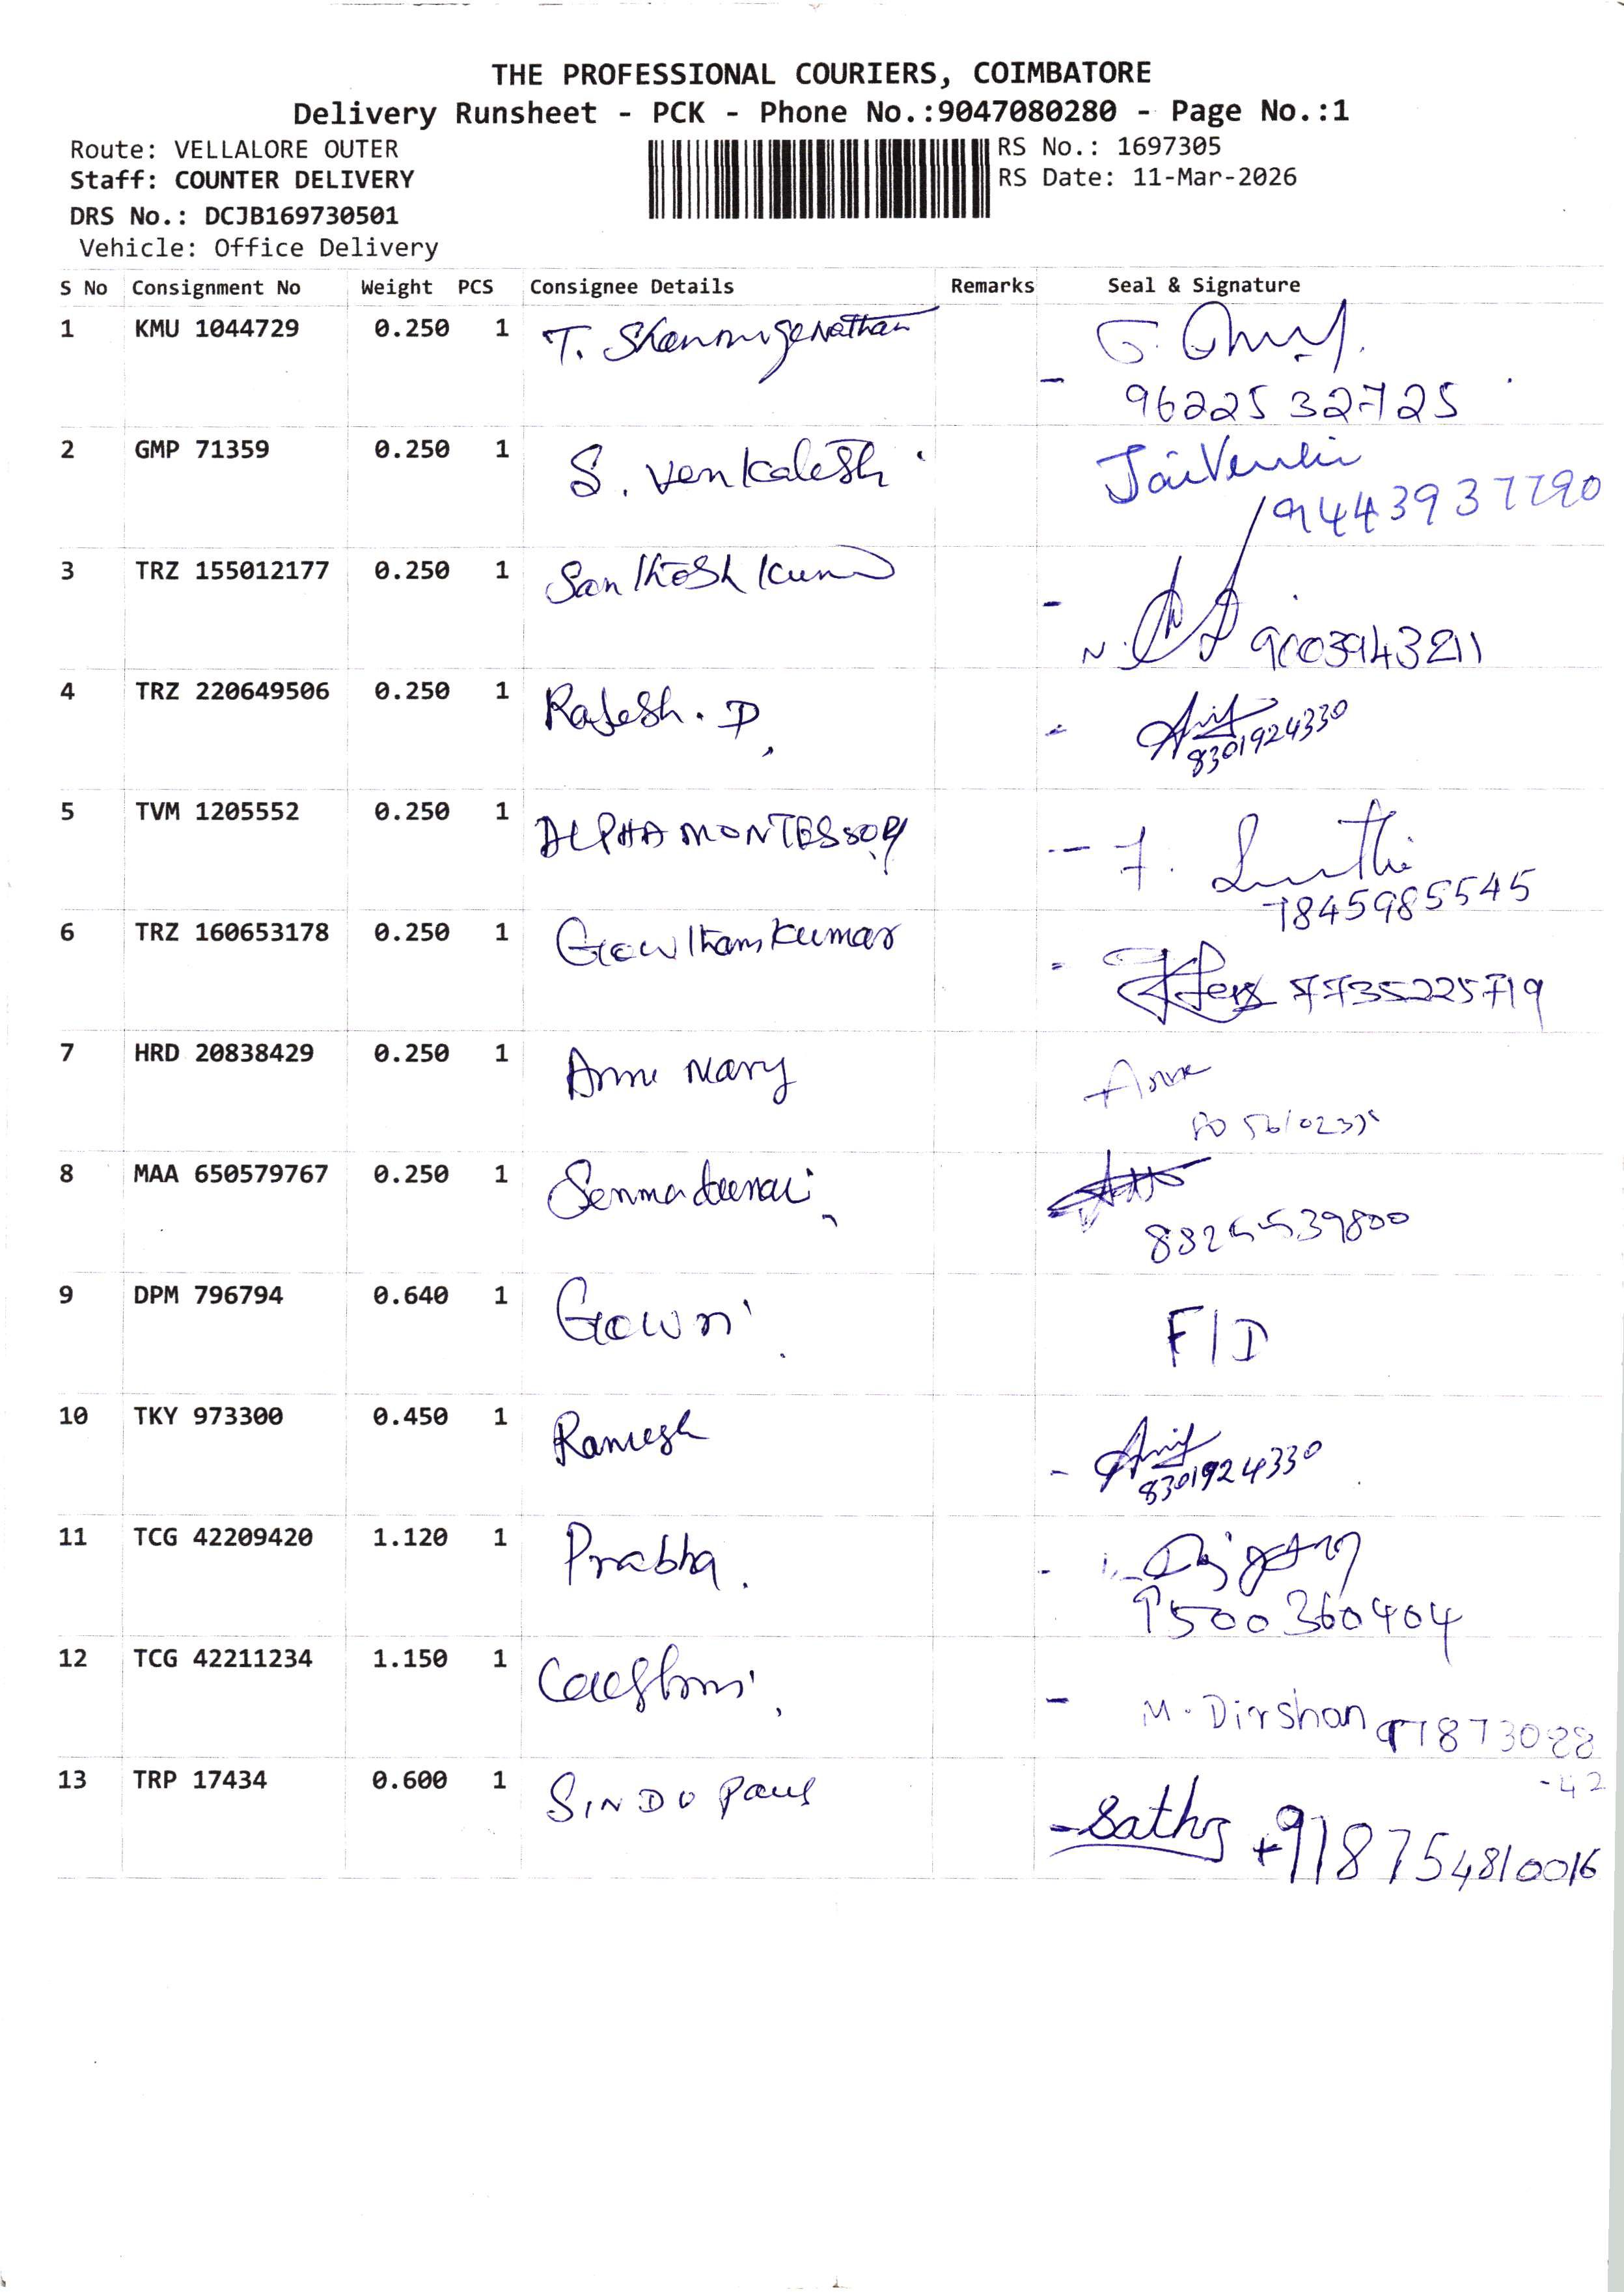 THE PROFESSIONAL COURIERS, COIMBATORE
Delivery Runsheet - PCK - Phone No.:9047080280 - Page No.:1
Route: VELLALORE OUTER
RS No.: 1697305
Staff: COUNTER DELIVERY
RS Date: 11-Mar-2026
DRS No.: DCJB169730501
Vehicle: Office Delivery
S No Consignment No Weight PCS Consignee Details Remarks Seal & Signature
1 KMU 1044729 0.250 1 T.
9622532725
2 GMP 71359 0.250 1 S. Venkatesh
9443937790
3 TRZ 155012177 0.250 1 Santhosh Kumar
9003943211
4 TRZ 220649506 0.250 1 Rajesh. D
8301924330
5 TVM 1205552 0.250 1 ALPHA MONTESSORY
7845985545
6 TRZ 160653178 0.250 1 Gowtham Kumar
7735225719
7 HRD 20838429 0.250 1 Anne Mary
8 MAA 650579767 0.250 1
9 DPM 796794 0.640 1 Gowri
F/D
10 TKY 973300 0.450 1 Ramesh
8301924330
11 TCG 42209420 1.120 1 Prabha.
9500360404
12 TCG 42211234 1.150 1
M. Dirshan
-42
13 TRP 17434 0.600 1 SINDU Paul
+918754810016